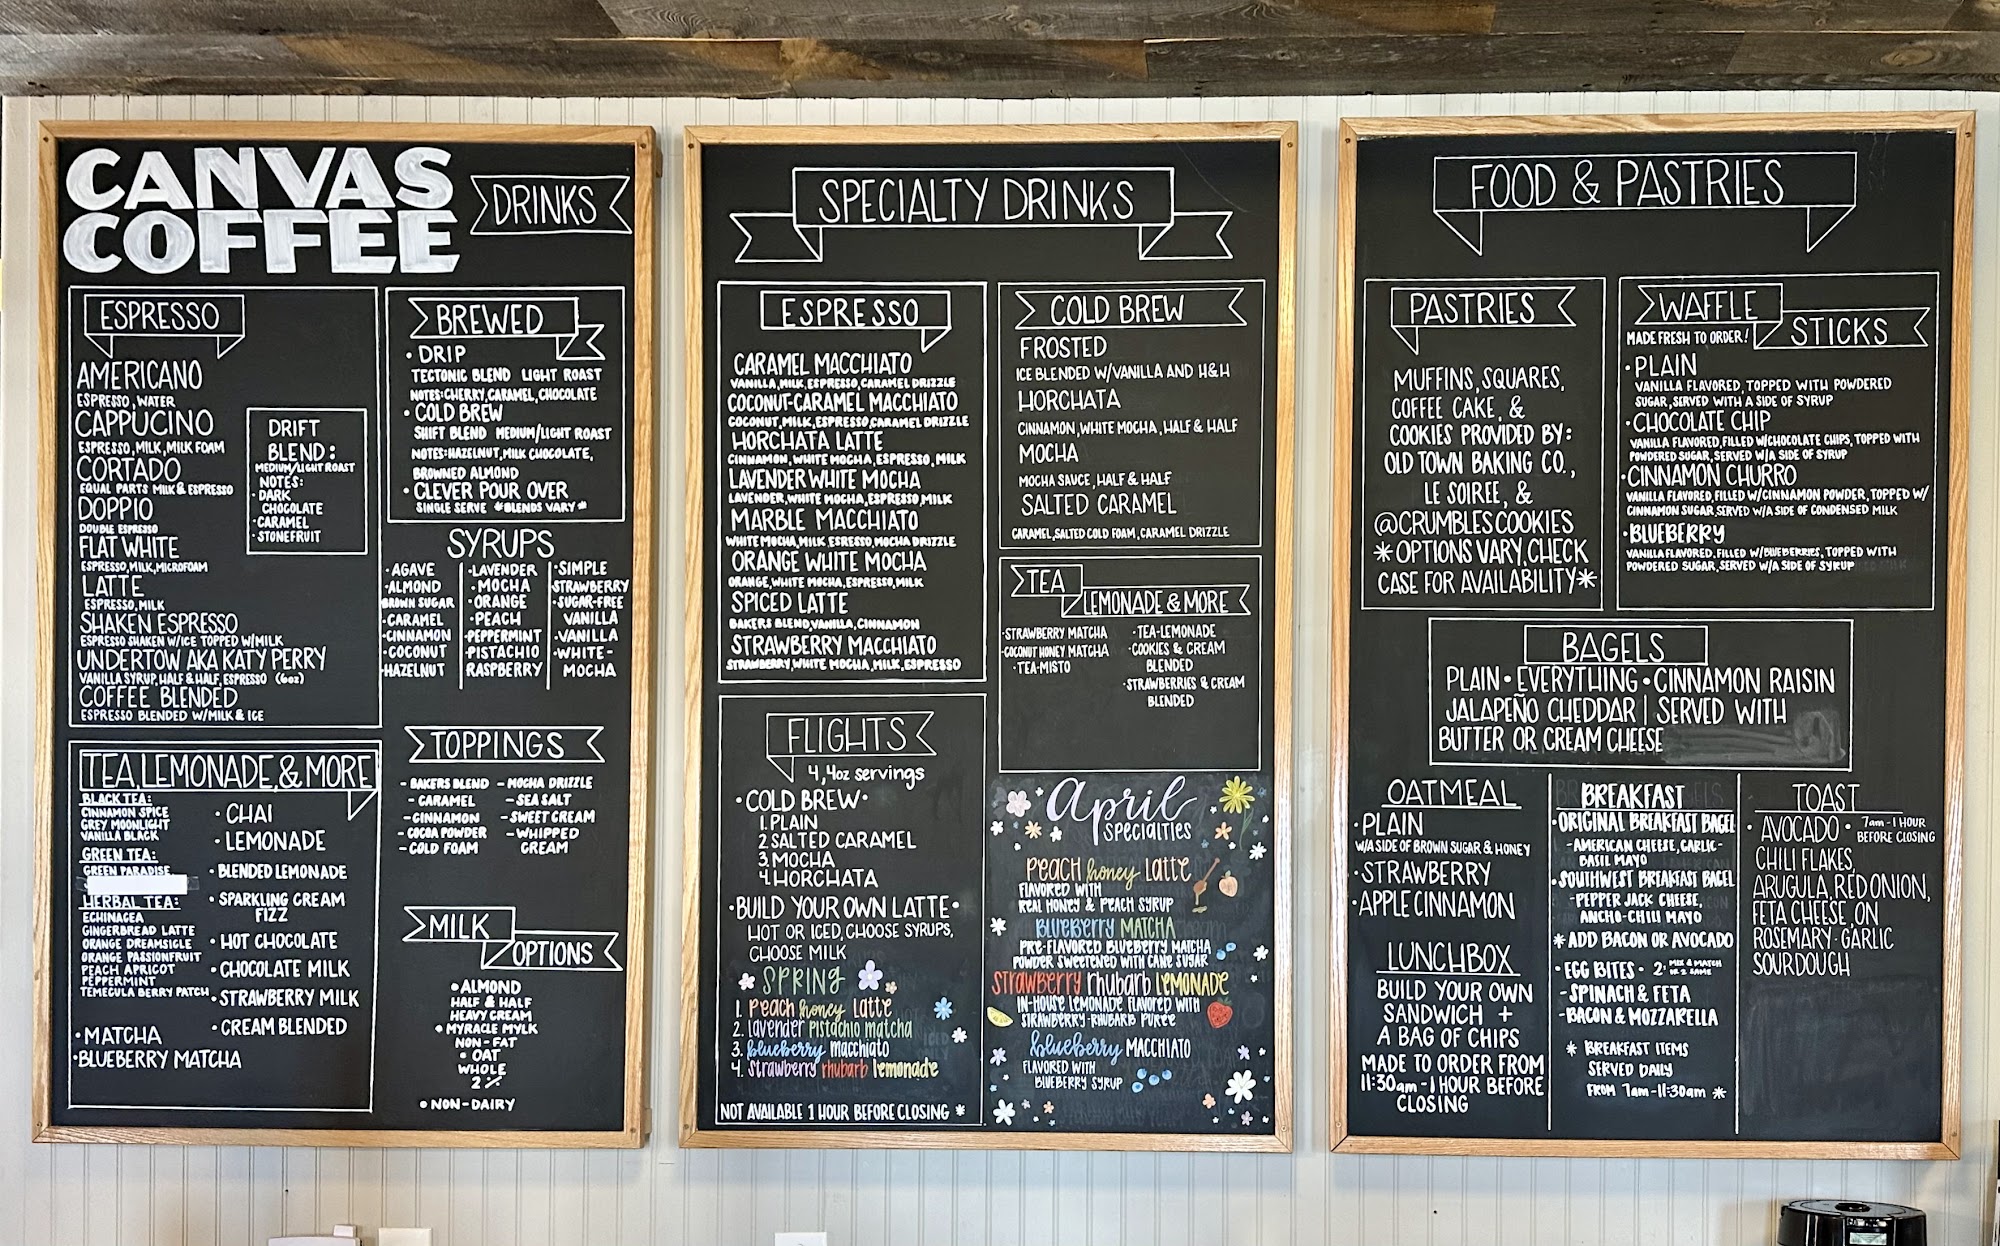 CANVAS
COFFEE
DRINKS
ESPRESSO
AMERICANO
ESPRESSO, WATER
CAPPUCINO
ESPRESSO, MILK, MILK FOAM
CORTADO
EQUAL PARTS MILK & ESPRESSO
DOPPIO
DOUBLE ESPRESSO
FLAT WHITE
ESPRESSO, MILK, MICROFOAM
LATTE
ESPRESSO, MILK
SHAKEN ESPRESSO
ESPRESSO SHAKEN W/ICE TOPPED W/MILK
UNDERTOW AKA KATY PERRY
VANILLA SYRUP, HALF & HALF, ESPRESSO (6oz)
COFFEE BLENDED
ESPRESSO BLENDED W/MILK & ICE
DRIFT
BLEND:
MEDIUM/LIGHT ROAST
NOTES:
• DARK
CHOCOLATE
• CARAMEL
• STONEFRUIT
BREWED
• DRIP
TECTONIC BLEND LIGHT ROAST
NOTES: CHERRY, CARAMEL, CHOCOLATE
• COLD BREW
SHIFT BLEND MEDIUM/LIGHT ROAST
NOTES: HAZELNUT, MILK CHOCOLATE,
BROWNED ALMOND
• CLEVER POUR OVER
SINGLE SERVE *BLENDS VARY*
SYRUPS
• AGAVE
• ALMOND
BROWN SUGAR
• CARAMEL
• CINNAMON
• COCONUT
• HAZELNUT
• LAVENDER
• MOCHA
• ORANGE
• PEACH
• PEPPERMINT
• PISTACHIO
RASPBERRY
• SIMPLE
• STRAWBERRY
• SUGAR-FREE
VANILLA
• VANILLA
• WHITE-
MOCHA
TEA, LEMONADE, & MORE
BLACK TEA:
CINNAMON SPICE
GREY MOONLIGHT
VANILLA BLACK
GREEN TEA:
GREEN PARADISE
HERBAL TEA:
ECHINACEA
GINGERBREAD LATTE
ORANGE DREAMSICLE
ORANGE PASSIONFRUIT
PEACH APRICOT
PEPPERMINT
TEMECULA BERRY PATCH
• MATCHA
• BLUEBERRY MATCHA
• CHAI
• LEMONADE
• BLENDED LEMONADE
• SPARKLING CREAM
FIZZ
• HOT CHOCOLATE
• CHOCOLATE MILK
• STRAWBERRY MILK
• CREAM BLENDED
TOPPINGS
- BAKERS BLEND
- CARAMEL
- CINNAMON
- COCOA POWDER
- COLD FOAM
- MOCHA DRIZZLE
- SEA SALT
- SWEET CREAM
- WHIPPED
CREAM
MILK
OPTIONS
• ALMOND
HALF & HALF
HEAVY CREAM
• MYRACLE MYLK
NON-FAT
• OAT
WHOLE
2%
• NON-DAIRY
SPECIALTY DRINKS
ESPRESSO
CARAMEL MACCHIATO
VANILLA, MILK, ESPRESSO, CARAMEL DRIZZLE
COCONUT-CARAMEL MACCHIATO
COCONUT, MILK, ESPRESSO, CARAMEL DRIZZLE
HORCHATA LATTE
CINNAMON, WHITE MOCHA, ESPRESSO, MILK
LAVENDER WHITE MOCHA
LAVENDER, WHITE MOCHA, ESPRESSO, MILK
MARBLE MACCHIATO
WHITE MOCHA, MILK ESPRESSO, MOCHA DRIZZLE
ORANGE WHITE MOCHA
ORANGE, WHITE MOCHA, ESPRESSO, MILK
SPICED LATTE
BAKERS BLEND, VANILLA, CINNAMON
STRAWBERRY MACCHIATO
STRAWBERRY, WHITE MOCHA, MILK, ESPRESSO
COLD BREW
FROSTED
ICE BLENDED W/VANILLA AND H&H
HORCHATA
CINNAMON, WHITE MOCHA, HALF & HALF
MOCHA
MOCHA SAUCE, HALF & HALF
SALTED CARAMEL
CARAMEL, SALTED COLD FOAM, CARAMEL DRIZZLE
TEA
LEMONADE & MORE
• STRAWBERRY MATCHA
• COCONUT HONEY MATCHA
• TEA-MISTO
• TEA-LEMONADE
• COOKIES & CREAM
BLENDED
• STRAWBERRIES & CREAM
BLENDED
FLIGHTS
4, 4oz servings
• COLD BREW •
1. PLAIN
2. SALTED CARAMEL
3. MOCHA
4. HORCHATA
• BUILD YOUR OWN LATTE •
HOT OR ICED, CHOOSE SYRUPS,
CHOOSE MILK
SPRING
1. Peach honey Latte
2. lavender pistachio matcha
3. blueberry macchiato
4. strawberry rhubarb lemonade
NOT AVAILABLE 1 HOUR BEFORE CLOSING *
April
SPECIALTIES
Peach honey Latte
FLAVORED WITH
REAL HONEY & PEACH SYRUP
BLUEBERRY MATCHA
PRE-FLAVORED BLUEBERRY MATCHA
POWDER SWEETENED WITH CANE SUGAR
STRAWBERRY rhubarb LEMONADE
IN-HOUSE LEMONADE FLAVORED WITH
STRAWBERRY-RHUBARB PUREE
blueberry MACCHIATO
FLAVORED WITH
BLUEBERRY SYRUP
FOOD & PASTRIES
PASTRIES
MUFFINS, SQUARES,
COFFEE CAKE, &
COOKIES PROVIDED BY:
OLD TOWN BAKING CO.,
LE SOIREE, &
@CRUMBLESCOOKIES
*OPTIONS VARY, CHECK
CASE FOR AVAILABILITY*
WAFFLE
STICKS
MADE FRESH TO ORDER!
• PLAIN
VANILLA FLAVORED, TOPPED WITH POWDERED
SUGAR, SERVED WITH A SIDE OF SYRUP
• CHOCOLATE CHIP
VANILLA FLAVORED, FILLED W/CHOCOLATE CHIPS, TOPPED WITH
POWDERED SUGAR, SERVED W/A SIDE OF SYRUP
• CINNAMON CHURRO
VANILLA FLAVORED, FILLED W/CINNAMON POWDER, TOPPED W/
CINNAMON SUGAR, SERVED W/A SIDE OF CONDENSED MILK
• BLUEBERRY
VANILLA FLAVORED, FILLED W/BLUEBERRIES, TOPPED WITH
POWDERED SUGAR, SERVED W/A SIDE OF SYRUP
BAGELS
PLAIN • EVERYTHING • CINNAMON RAISIN
JALAPEÑO CHEDDAR | SERVED WITH
BUTTER OR CREAM CHEESE
OATMEAL
• PLAIN
W/A SIDE OF BROWN SUGAR & HONEY
• STRAWBERRY
• APPLE CINNAMON
LUNCHBOX
BUILD YOUR OWN
SANDWICH +
A BAG OF CHIPS
MADE TO ORDER FROM
11:30am - 1 HOUR BEFORE
CLOSING
BREAKFAST
• ORIGINAL BREAKFAST BAGEL
- AMERICAN CHEESE, GARLIC-
BASIL MAYO
• SOUTHWEST BREAKFAST BAGEL
- PEPPER JACK CHEESE,
ANCHO-CHILI MAYO
* ADD BACON OR AVOCADO
• EGG BITES • 2
- SPINACH & FETA
- BACON & MOZZARELLA
* BREAKFAST ITEMS
SERVED DAILY
FROM 7am-11:30am *
TOAST
• AVOCADO • 7am-1 HOUR
BEFORE CLOSING
CHILI FLAKES,
ARUGULA, RED ONION,
FETA CHEESE, ON
ROSEMARY-GARLIC
SOURDOUGH